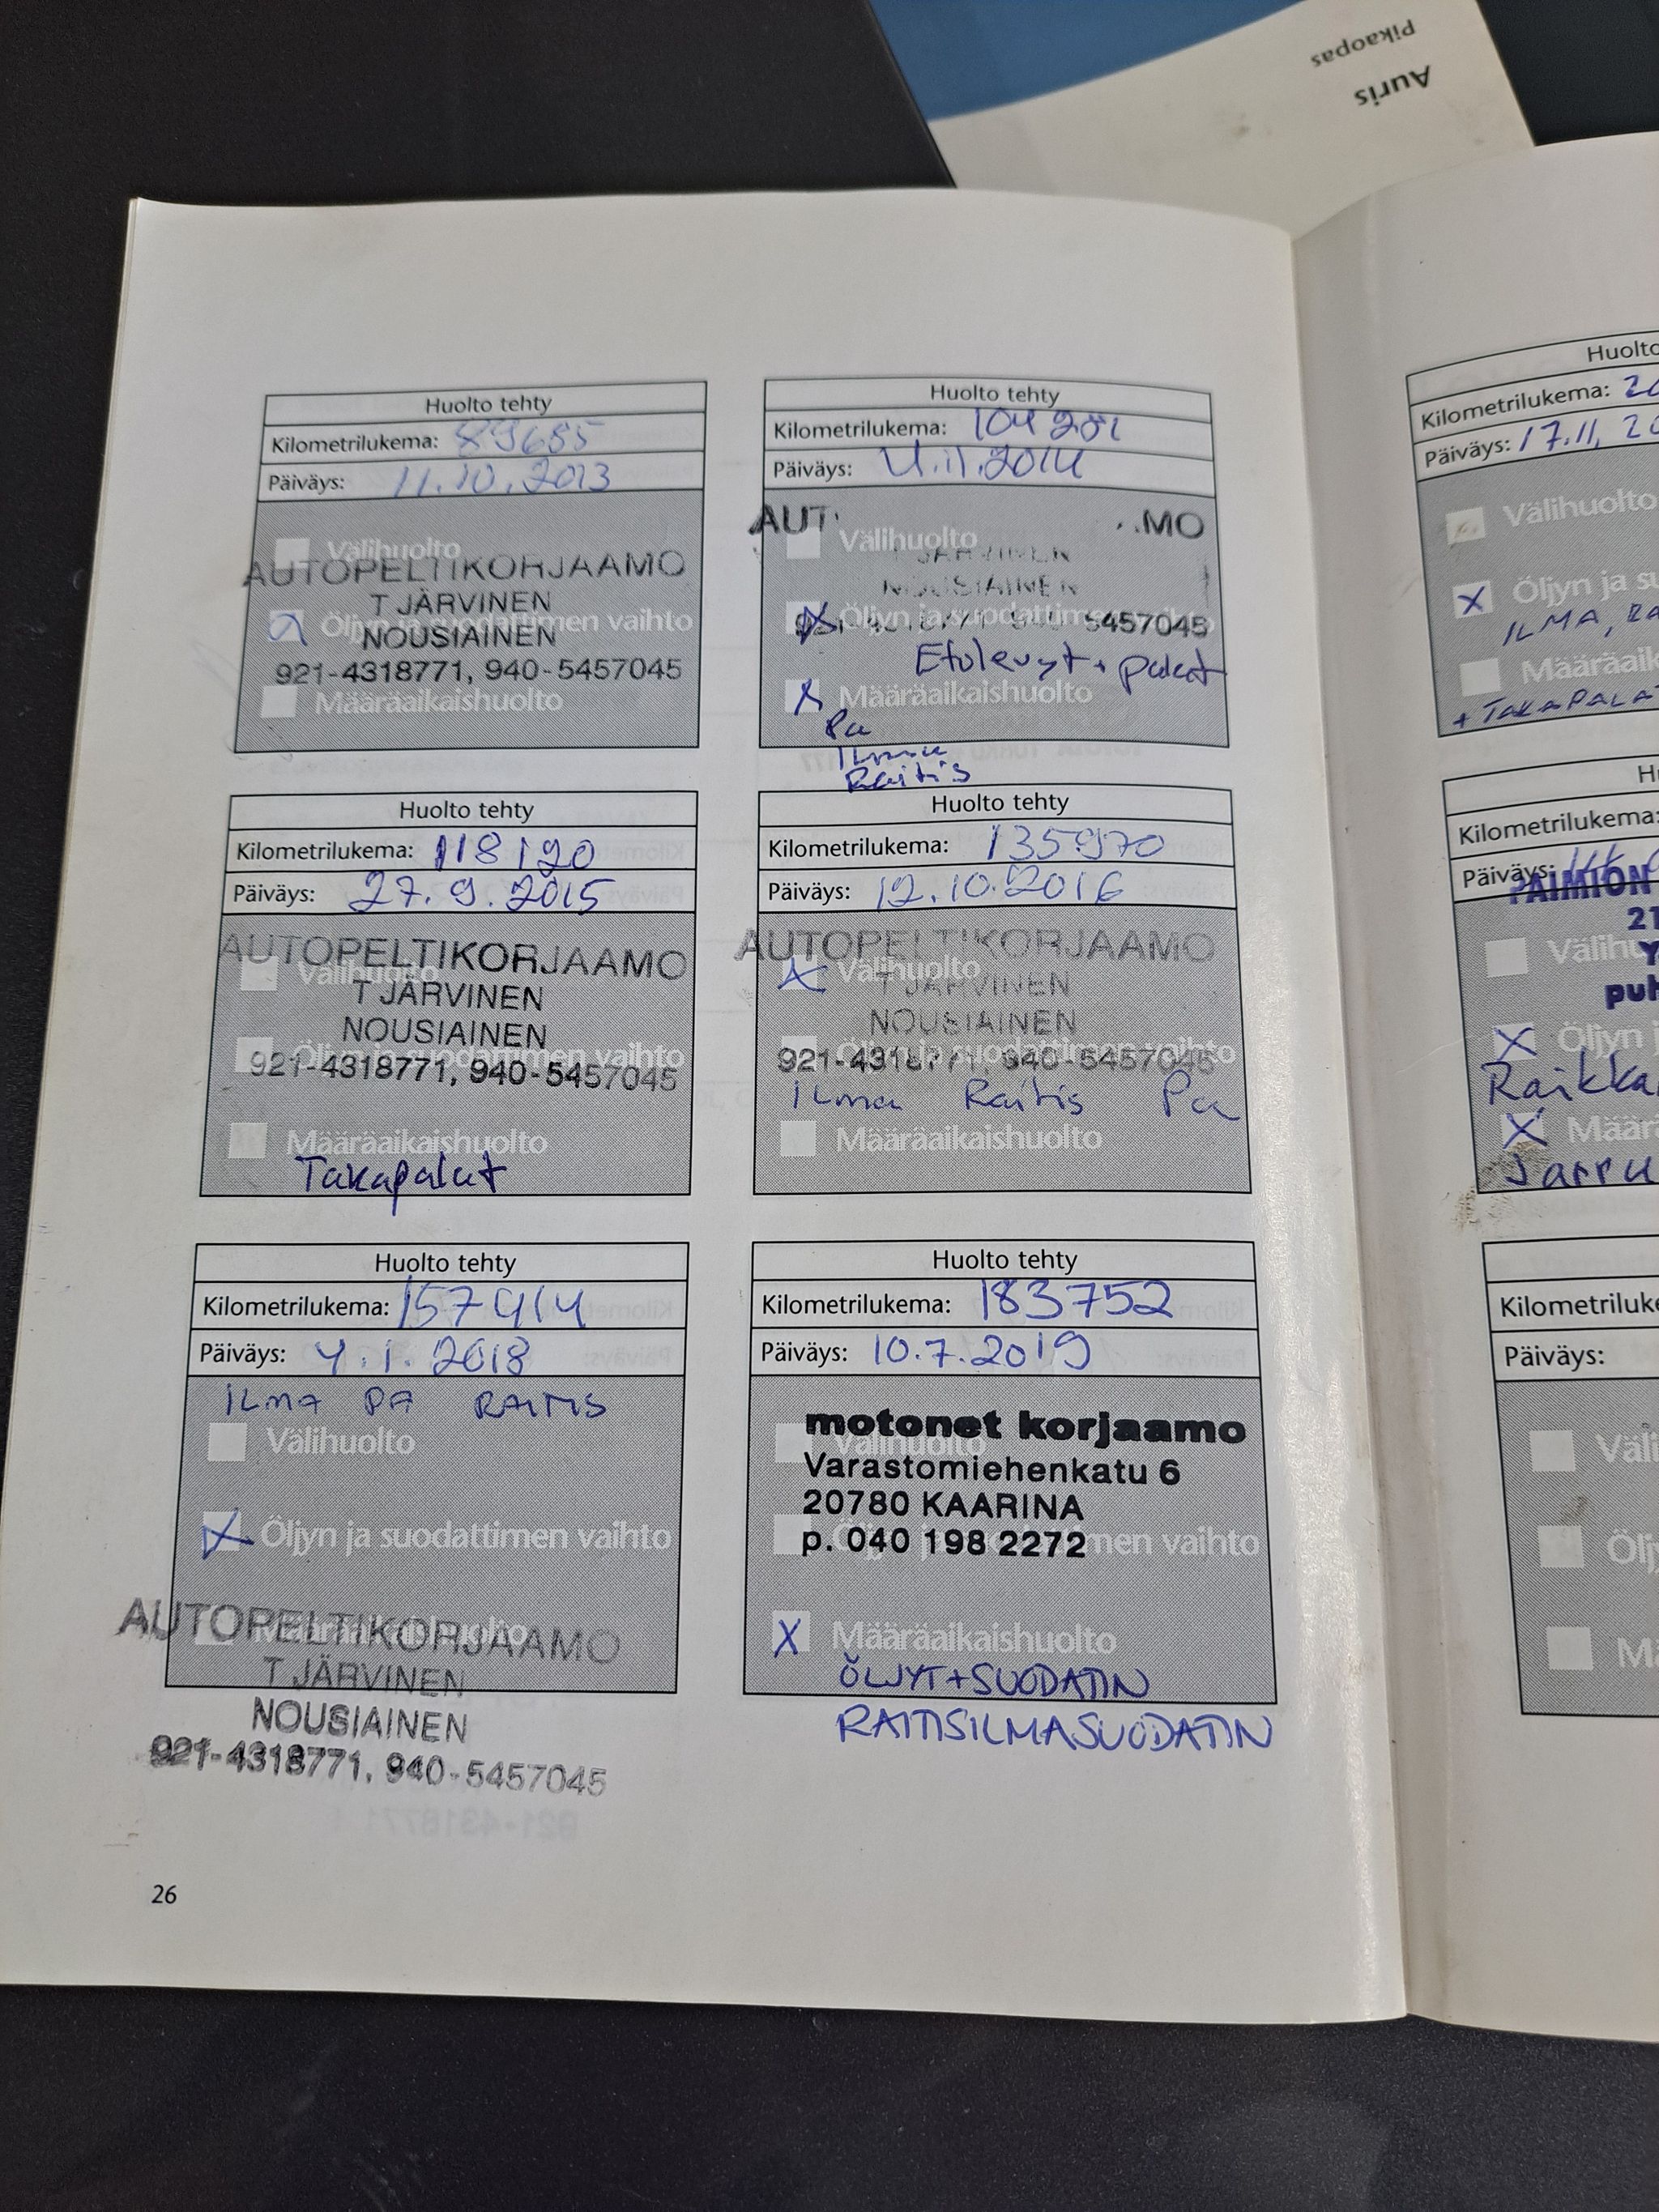 Auris
Pikaopas
Huolto tehty
Kilometrilukema: 89685
Päiväys: 11.10.2013
Välihuolto
AUTOPELTIKORJAAMO
T JÄRVINEN
Öljyn ja suodattimen vaihto
NOUSIAINEN
921-4318771, 940-5457045
Määräaikaishuolto
Huolto tehty
Kilometrilukema: 104201
Päiväys: 4.11.2014
AUT MO
Välihuolto
T JÄRVINEN
NOUSIAINEN
Öljyn ja suodattimen vaihto
5457045
Etulevyt + palat
Määräaikaishuolto
Pa
Ilma
Raitis
Huolto tehty
Kilometrilukema: 118190
Päiväys: 27.9.2015
AUTOPELTIKORJAAMO
Välihuolto
T JÄRVINEN
NOUSIAINEN
Öljyn ja suodattimen vaihto
921-4318771, 940-5457045
Määräaikaishuolto
Takapalat
Huolto tehty
Kilometrilukema: 135970
Päiväys: 12.10.2016
AUTOPELTIKORJAAMO
Välihuolto
T JÄRVINEN
NOUSIAINEN
Öljyn ja suodattimen vaihto
921-4318771, 940-5457045
Ilma Raitis Pa
Määräaikaishuolto
Huolto tehty
Kilometrilukema: 157414
Päiväys: 4.1.2018
ILMA PA RAITIS
Välihuolto
Öljyn ja suodattimen vaihto
Määräaikaishuolto
AUTOPELTIKORJAAMO
T JÄRVINEN
NOUSIAINEN
921-4318771, 940-5457045
Huolto tehty
Kilometrilukema: 183752
Päiväys: 10.7.2019
motonet korjaamo
Välihuolto
Varastomiehenkatu 6
20780 KAARINA
p. 040 198 2272
Öljyn ja suodattimen vaihto
X Määräaikaishuolto
ÖLJYT+SUODATIN
RAITISILMASUODATIN
26
Huolto
Kilometrilukema: 20
Päiväys: 17.11, 20
Välihuolto
X Öljyn ja su
ILMA, RA
Määräaik
+ TAKAPALAT
Hu
Kilometrilukema:
Päiväys: 14
PAIMION
21
Välihu
Y
puh
X Öljyn j
Raikka
X Määrä
Jarru
Kilometriluke
Päiväys:
Väli
Öljy
Mä